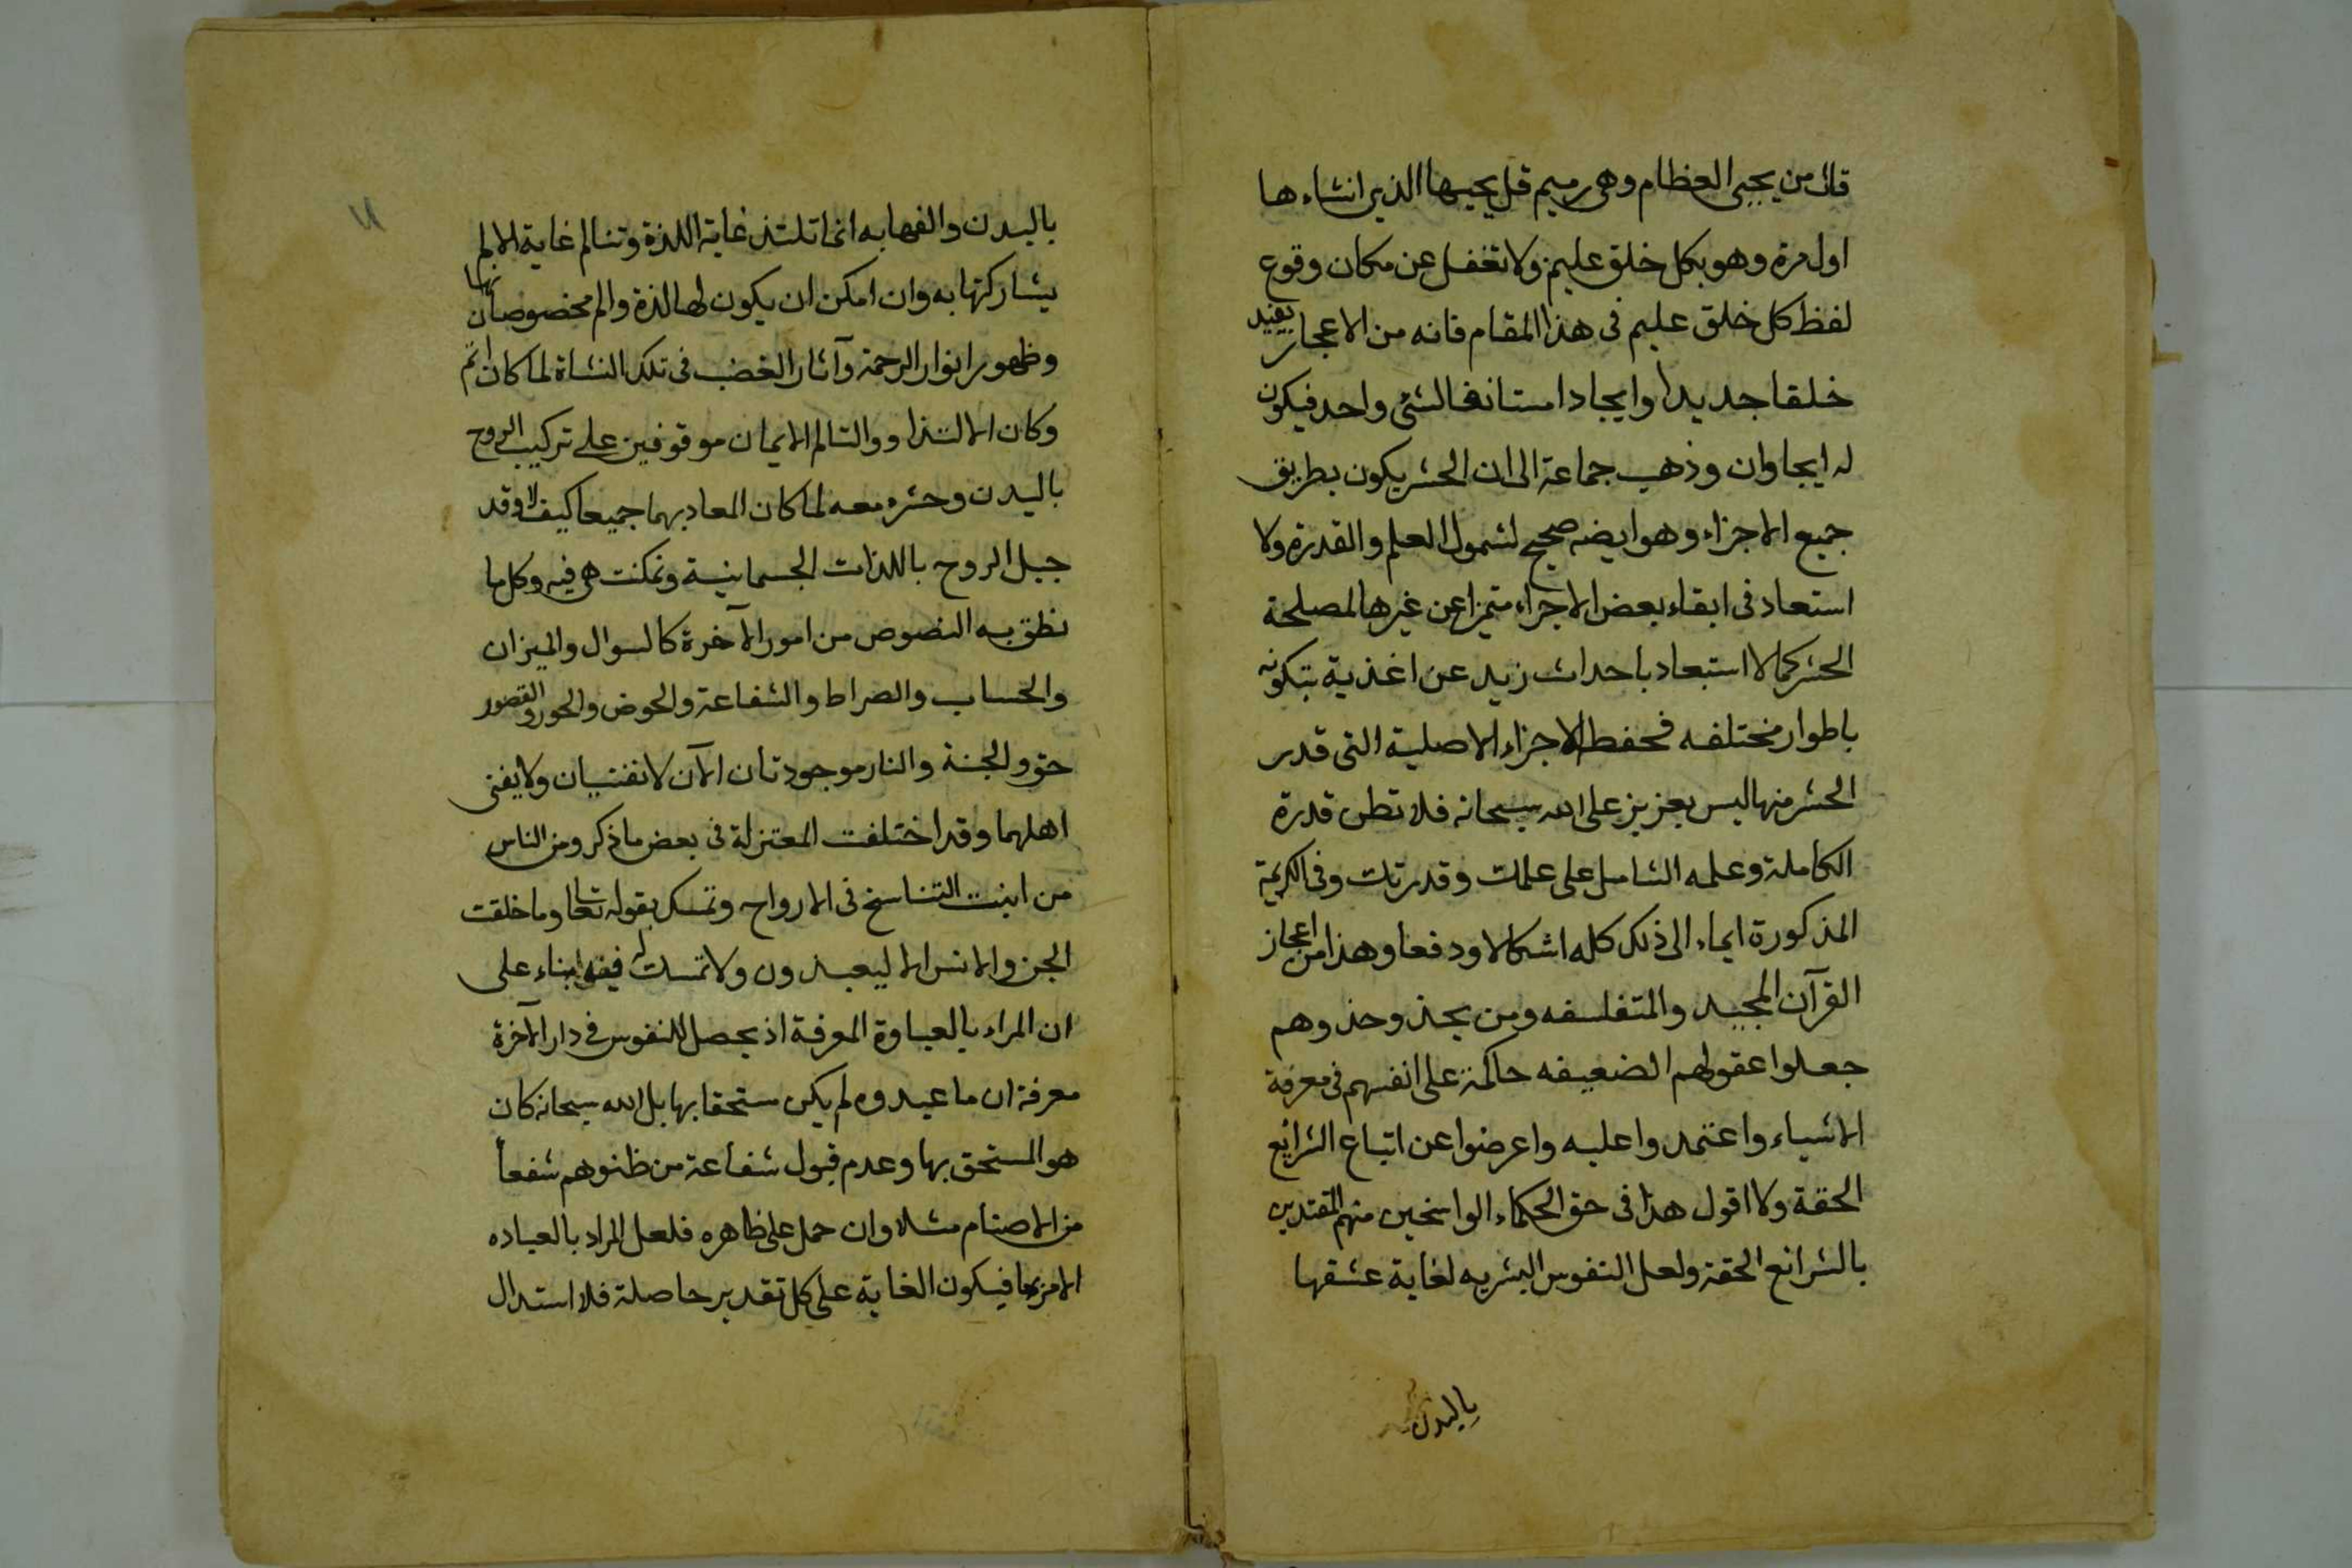 قال من يحيى العظام وهى رميم قل يحييها الذين انشاءها
اول مرة وهو بكل خلق عليم ولا تغفل عن مكان وقوع
لفظ كل خلق عليم فى هذا المقام فانه من الاعجاز يفيد
خلقا جديدا وايجادا مستانفا لشئ واحد فيكون
له ايجاوان وذهب جماعة الى ان الحشر يكون بطريق
جميع الاجزاء وهو ايضه صحيح لشمول العلم والقدرة ولا
استعاد فى ابقاء بعض الاجزاء متميزا عن غيرها لمصلحة
الحشر كما لا استبعاد باحداث زيد عن اغذية بتكونه
باطوار مختلفه فحفظ الاجزاء الاصلية التى قدر
الحشر منها ليس بعزيز على الله سبحانه فلا تظن قدرة
الكاملة وعلمه الشامل على علمك وقدرتك وفى الكريمة
المذكورة ايماء الى ذلك كله اشكالا ودفعا وهذا من اعجاز
القرآن المجيد والمتفلسفه ومن يحذو حذوهم
جعلوا عقولهم الضعيفه حاكمة على انفسهم فى معرفة
الاشياء واعتمدوا عليه واعرضوا عن اتباع الشرايع
الحقة ولا اقول هذا فى حق الحكماء الراسخين منهم المقتدين
بالشرائع الحقة ولعل النفوس البشريه لغاية عشقها
بالبدن
١١
بالبدن والفها به انما تلتذ غاية اللذة وتتالم غاية الالم
بشاركتها به وان امكن ان يكون لها لذة والم مخصوصان بها
وظهور انوار الرحمة وآثار الغضب فى تلك النشاة لما كان اتم
وكان الالتذاو والتالم الايمان موقوفين على تركيب الروح
بالبدن وحشره معه لما كان المعاد بهما جميعا كيف لا وقد
جبل الروح باللذات الجسمانية وتمكنت هى فيه وكل ما
نطق به النصوص من امور الآخرة كالسوال والميزان
والحساب والصراط والشفاعة والحوض والحور والقصور
حق والجنة والنار موجودتان الآن لا تفنيان ولا يفنى
اهلهما وقد اختلفت المعتزلة فى بعض ما ذكر ومن الناس
من اثبت التناسخ فى الارواح وتمسك بقوله تعالى وما خلقت
الجن والانس الا ليعبدون ولا تمسك له فيه بناء على
ان المراد بالعباوة المعرفة اذ يحصل للنفوس فى دار الآخرة
معرفة ان ما عبدوه لم يكن مستحقا بها بل الله سبحانه كان
هو المستحق بها وعدم قبول شفاعة من ظنوهم شفعاء
من الاصنام مثلا وان حمل على ظاهره فلعل المراد بالعباده
الامر بها فيكون الغاية على كل تقدير حاصلة فلا استدلال